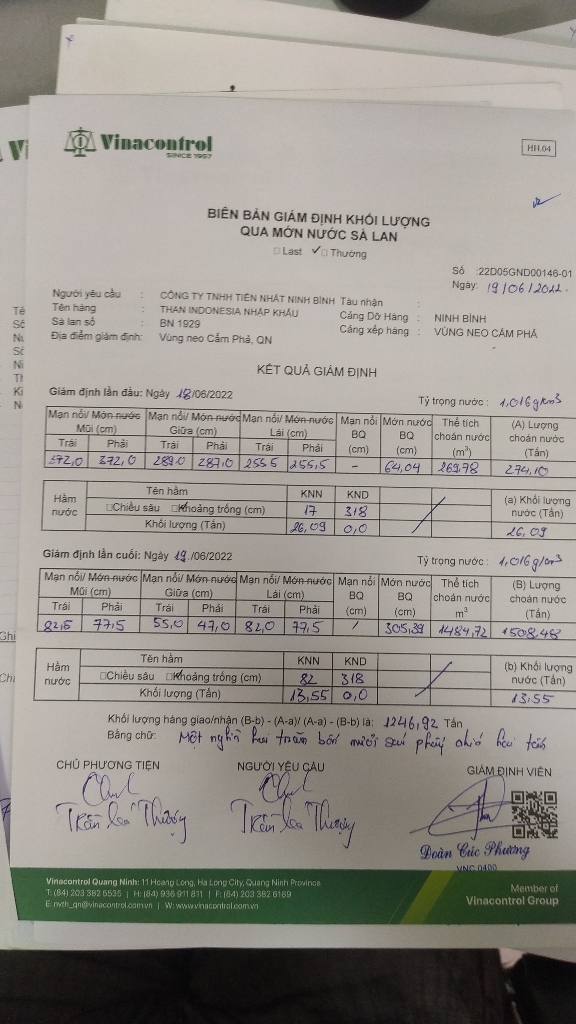 Vinacontrol
SINCE 1957
HH.04
BIÊN BẢN GIÁM ĐỊNH KHỐI LƯỢNG
QUA MỚN NƯỚC SÀ LAN
□ Last ✓□ Thường
Số :22D05GND00146-01
Ngày: 19/06/2022
Người yêu cầu : CÔNG TY TNHH TIẾN NHẤT NINH BÌNH Tàu nhận :
Tên hàng : THAN INDONESIA NHẬP KHẨU Cảng Dỡ Hàng : NINH BÌNH
Sà lan số : BN 1929 Cảng xếp hàng : VÙNG NEO CẨM PHẢ
Địa điểm giám định: Vùng neo Cẩm Phả, QN
KẾT QUẢ GIÁM ĐỊNH
Giám định lần đầu: Ngày 18/06/2022 Tỷ trọng nước : 1,016g/cm3
Mạn nổi/ Mớn nước Mũi (cm) Mạn nổi/ Mớn nước Giữa (cm) Mạn nổi/ Mớn nước Lái (cm) Mạn nổi BQ (cm) Mớn nước BQ (cm) Thể tích choán nước (m3) (A) Lượng choán nước (Tấn)
Trái Phải Trái Phải Trái Phải
372,0 372,0 289,0 287,0 255,5 255,5 - 64,04 269,78 274,10
Hầm nước Tên hầm KNN KND (a) Khối lượng nước (Tấn)
□Chiều sâu □Khoảng trống (cm) 17 318
Khối lượng (Tấn) 26,09 0,0 26,09
Giám định lần cuối: Ngày 19/06/2022 Tỷ trọng nước : 1,016g/cm3
Mạn nổi/ Mớn nước Mũi (cm) Mạn nổi/ Mớn nước Giữa (cm) Mạn nổi/ Mớn nước Lái (cm) Mạn nổi BQ (cm) Mớn nước BQ (cm) Thể tích choán nước m3 (B) Lượng choán nước (Tấn)
Trái Phải Trái Phải Trái Phải
82,5 77,5 55,0 47,0 82,0 77,5 / 305,39 1484,72 1508,48
Hầm nước Tên hầm KNN KND (b) Khối lượng nước (Tấn)
□Chiều sâu □Khoảng trống (cm) 82 318
Khối lượng (Tấn) 13,55 0,0 13,55
Khối lượng hàng giao/nhận (B-b) - (A-a)/ (A-a) - (B-b) là: 1246,92 Tấn
Bằng chữ: Một nghìn hai trăm bốn mươi sáu phẩy chín hai tấn
CHỦ PHƯƠNG TIỆN NGƯỜI YÊU CẦU GIÁM ĐỊNH VIÊN
Đoàn Cúc Phương
VNC 0400
Vinacontrol Quang Ninh: 11 Hoang Long, Ha Long City, Quang Ninh Province
T: (84) 203 382 5535 | H: (84) 936 911 811 | F: (84) 203 382 6169
E: nvth_qn@vinacontrol.com.vn | W: www.vinacontrol.com.vn
Member of
Vinacontrol Group